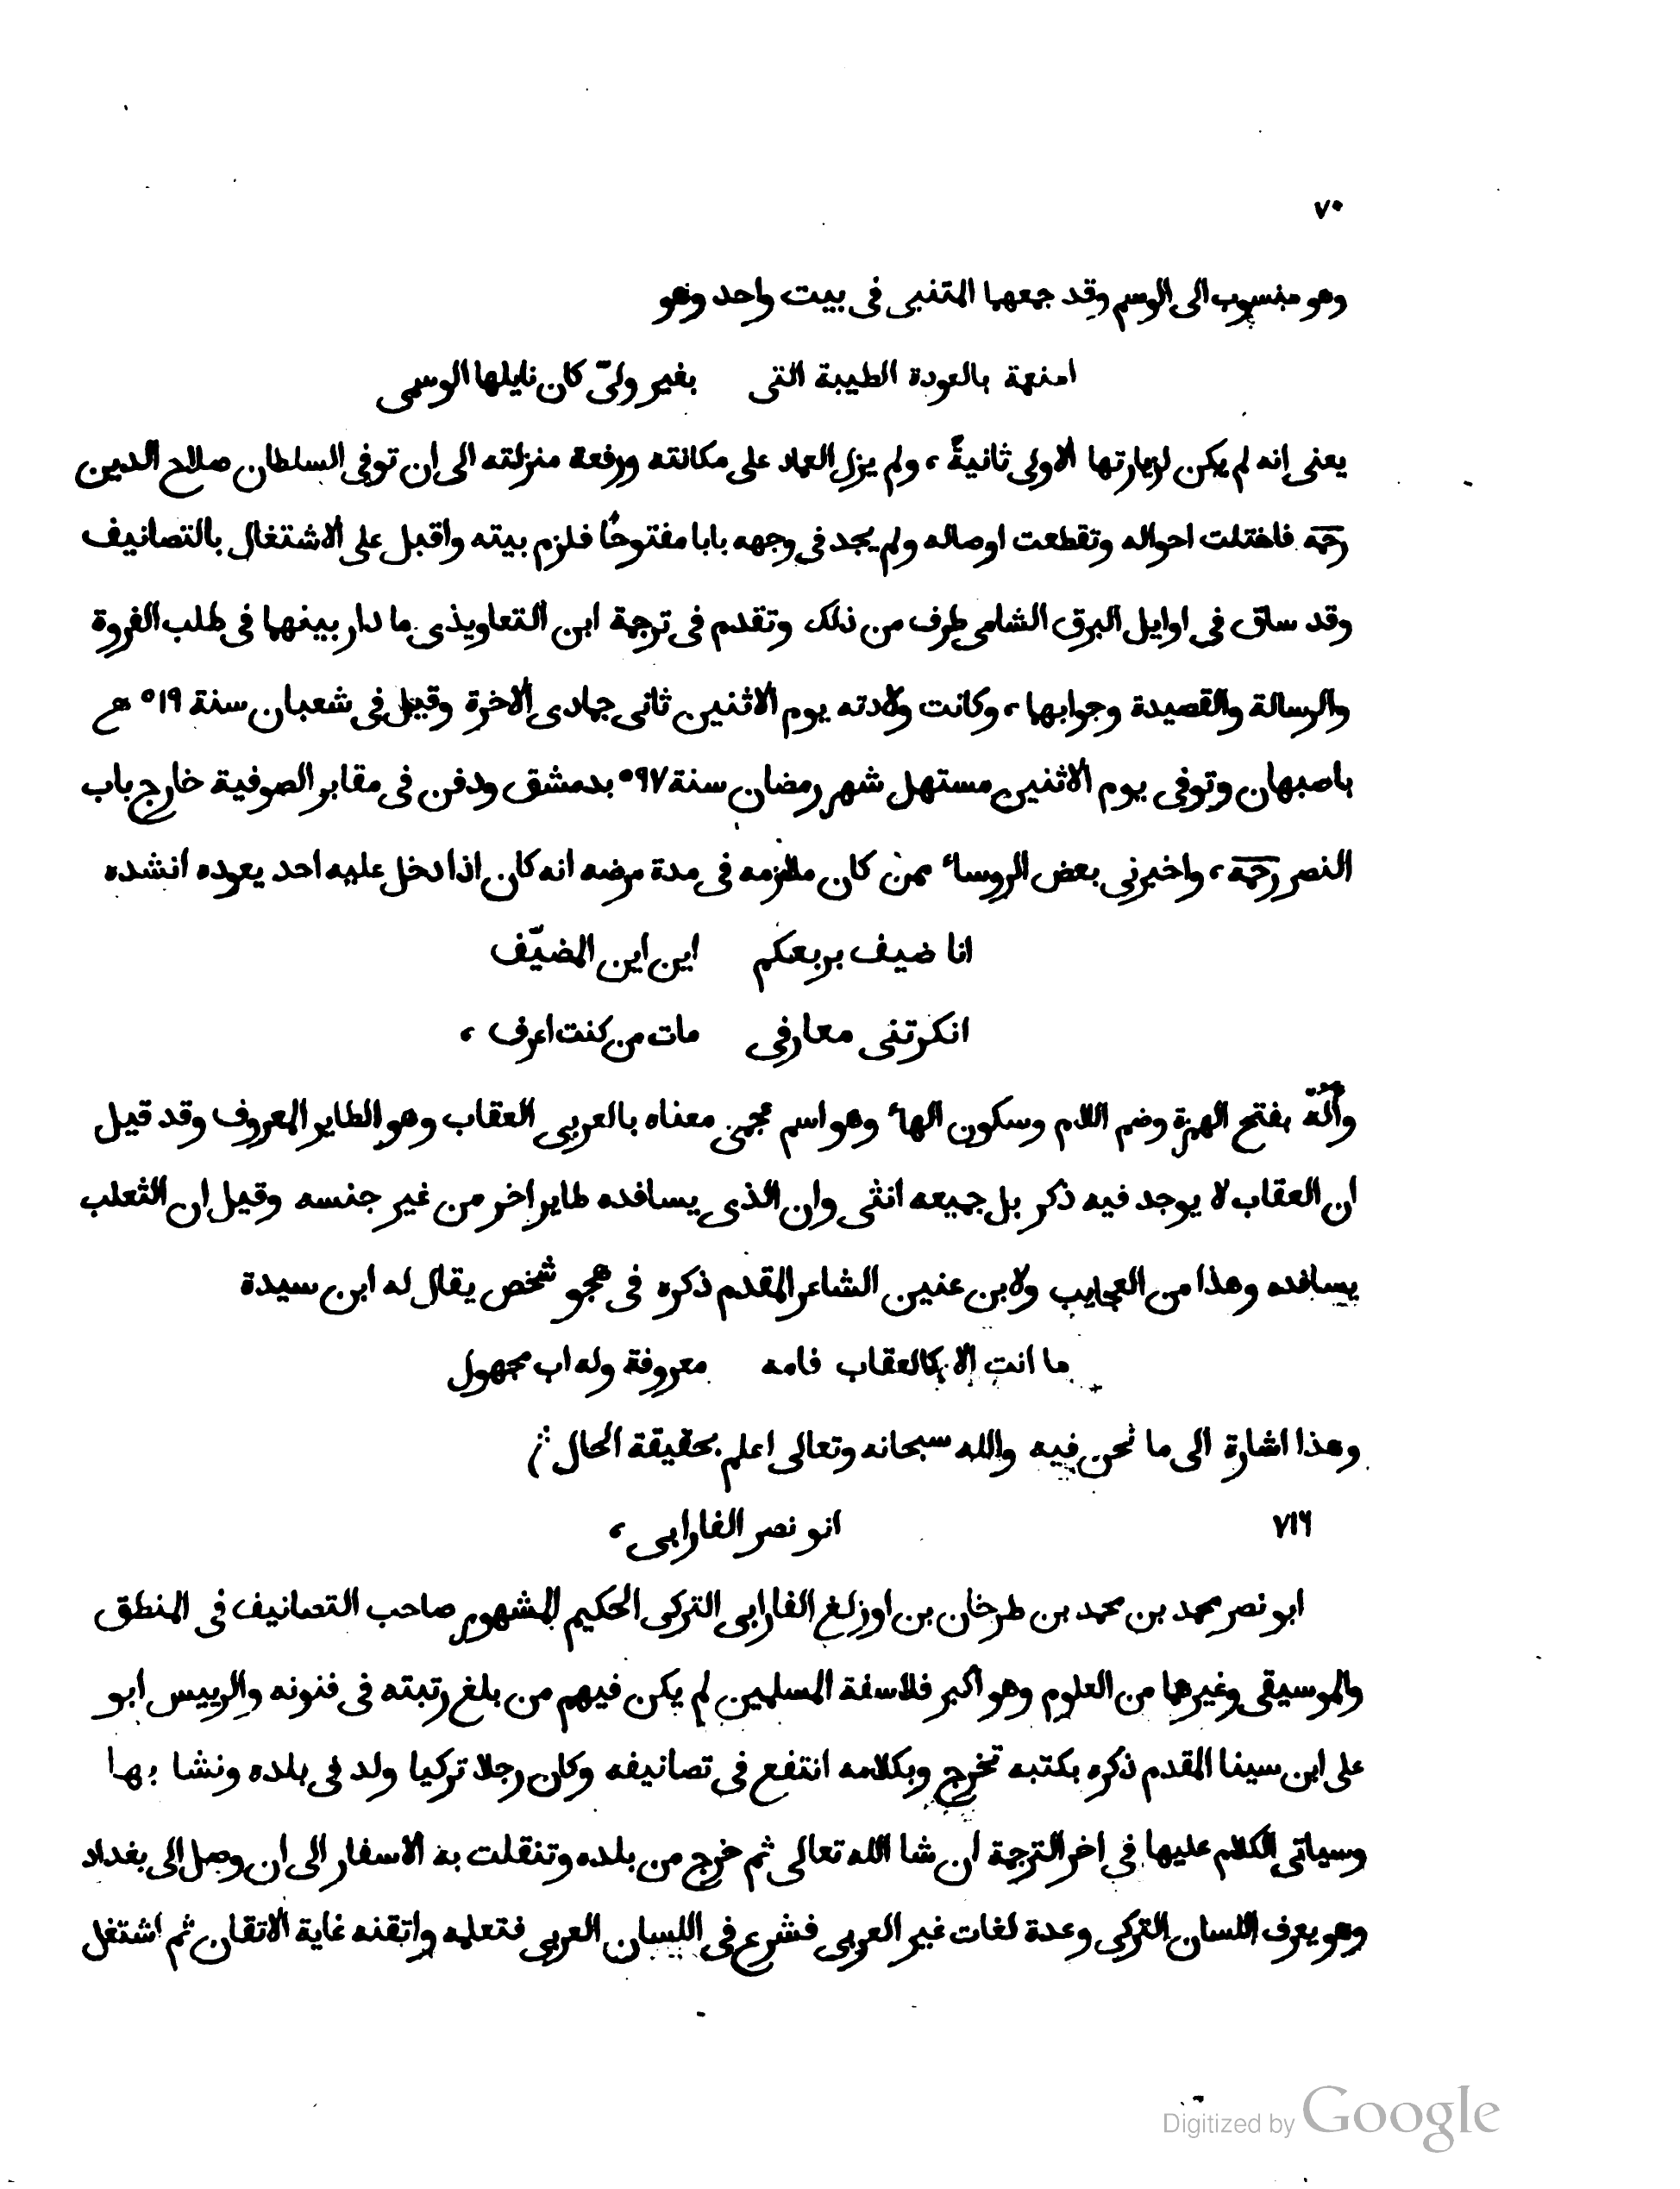 ٧٠
وهو منسوب الى الوسم وقد جمعهما المتنبى فى بيت واحد وهو
امنعمة بالعودة الظبية التى بغير ولىّ كان نايلها الوسمى
يعنى انه لم يكن لزيارتها الاولى ثانيةً ، ولم يزل العماد على مكانته ورفعة منزلته الى ان توفى السلطان صلاح الدين
رحمه فاختلت احواله وتقطعت اوصاله ولم يجد فى وجهه بابا مفتوحًا فلزم بيته واقبل على الاشتغال بالتصانيف
وقد ساق فى اوايل البرق الشامى طرف من ذلك وتقدم فى ترجمة ابن التعاويذى ما دار بينهما فى طلب الفروة
والرسالة والقصيدة وجوابهما ، وكانت ولادته يوم الاثنين ثانى جمادى الاخرة وقيل فى شعبان سنة ٥١٩ هـ
باصبهان وتوفى يوم الاثنين مستهل شهر رمضان سنة ٥٩٧ بدمشق ودفن فى مقابر الصوفية خارج باب
النصر رحمه ، واخبرنى بعض الروساء ممن كان ملازمه فى مدة مرضه انه كان اذا دخل عليه احد يعوده انشده
انا ضيف بربعكم اين اين المضيّف
انكرتنى معارفى مات من كنت اعرف ،
وأَلُهْ بفتح الهمزة وضم اللام وسكون الهاء وهو اسم عجمى معناه بالعربى العقاب وهو الطاير المعروف وقد قيل
ان العقاب لا يوجد فيه ذكر بل جميعه انثى وان الذى يسافده طاير اخر من غير جنسه وقيل ان الثعلب
يسافده وهذا من العجايب ولابن عنين الشاعر المقدم ذكره فى هجو شخص يقال له ابن سيدة
ما انت الا كالعقاب فامه معروفة وله اب مجهول
وهذا اشارة الى ما نحن فيه والله سبحانه وتعالى اعلم بحقيقة الحال
٧١٦ ابو نصر الفارابى ،
ابو نصر محمد بن محمد بن طرخان بن اوزلغ الفارابى التركى الحكيم المشهور صاحب التصانيف فى المنطق
والموسيقى وغيرهما من العلوم وهو اكبر فلاسفة المسلمين لم يكن فيهم من بلغ رتبته فى فنونه والرييس ابو
على ابن سينا المقدم ذكره بكتبه تخرج وبكلامه انتفع فى تصانيفه وكان رجلا تركيا ولد فى بلده ونشا بها
وسياتى الكلام عليها فى اخر الترجمة ان شا الله تعالى ثم خرج من بلده وتنقلت به الاسفار الى ان وصل الى بغداد
وهو يعرف اللسان التركى وعدة لغات غير العربى فشرع فى اللسان العربى فتعلمه واتقنه غاية الاتقان ثم اشتغل
Digitized by Google